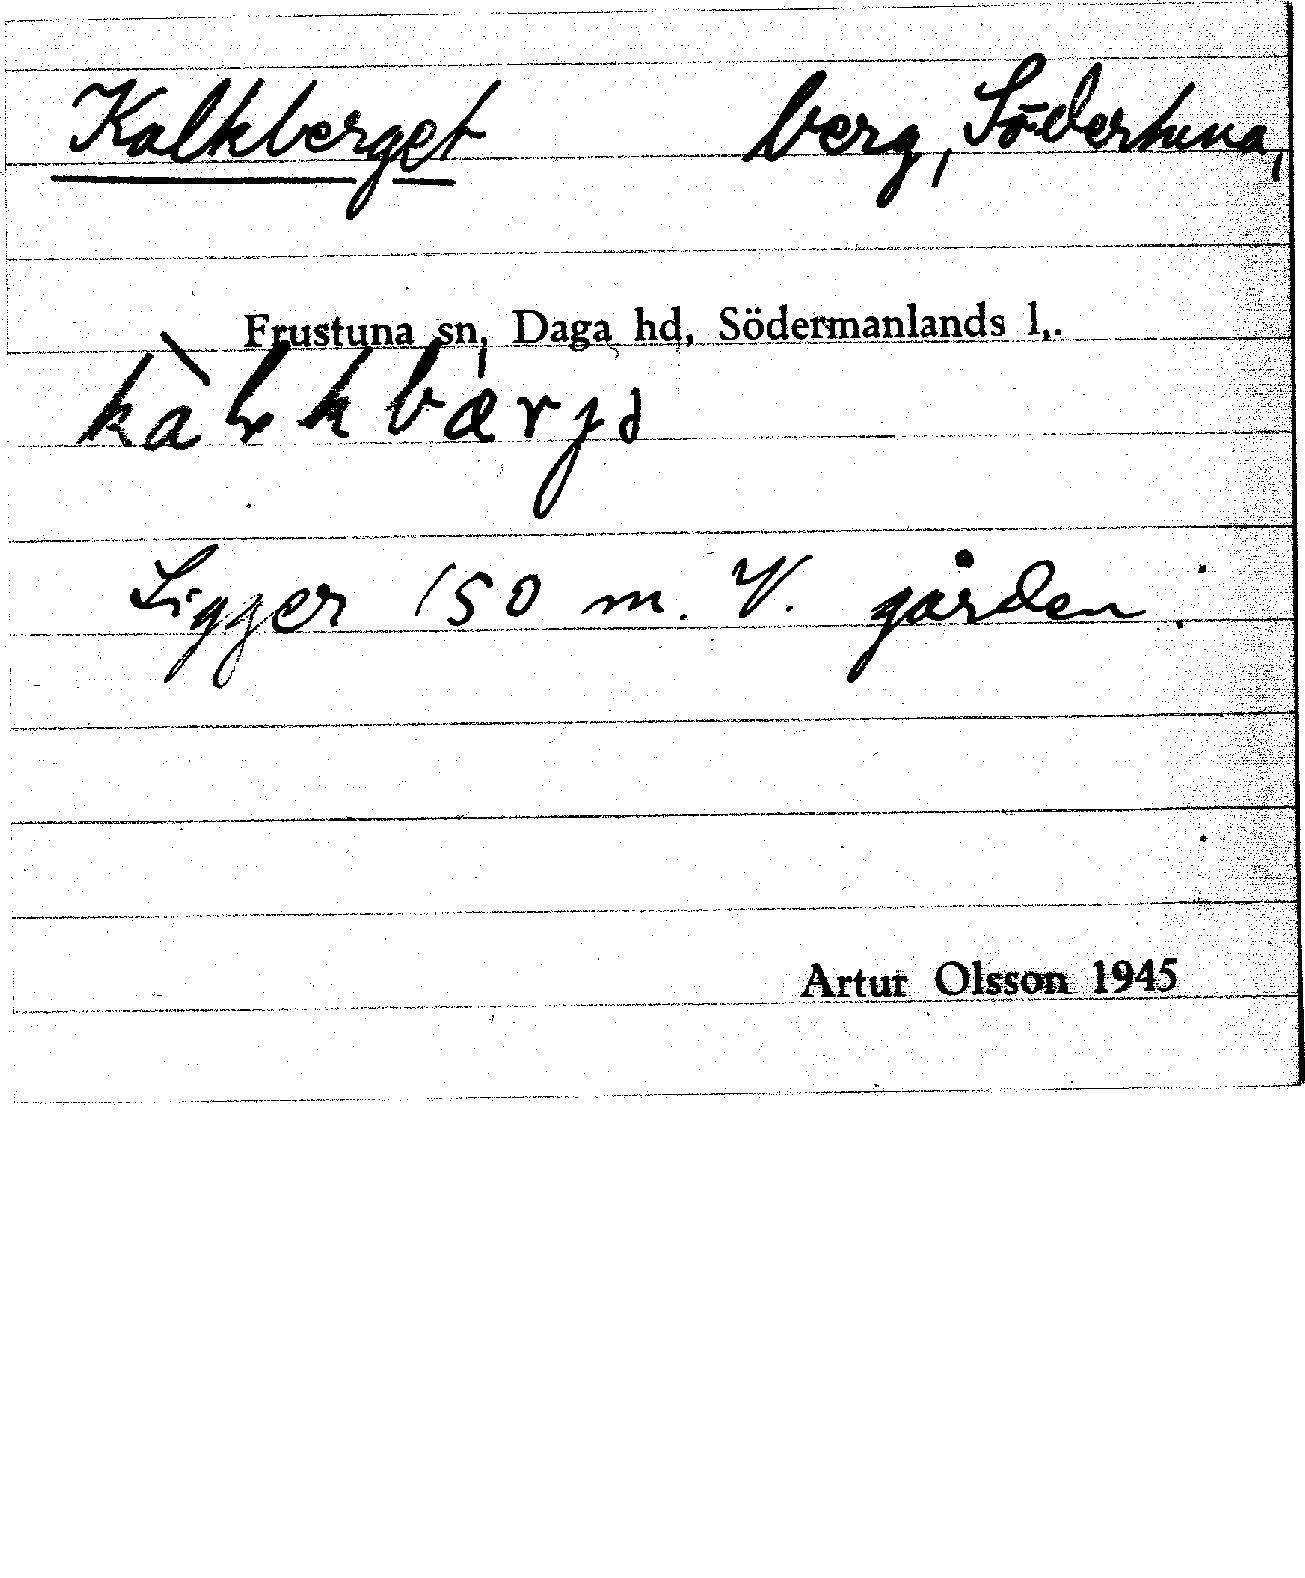 Kalkberget berg, Södertuna,
Frustuna sn, Daga hd, Södermanlands l,.
Ligger 150 m. V. gården.
Artur Olsson 1945